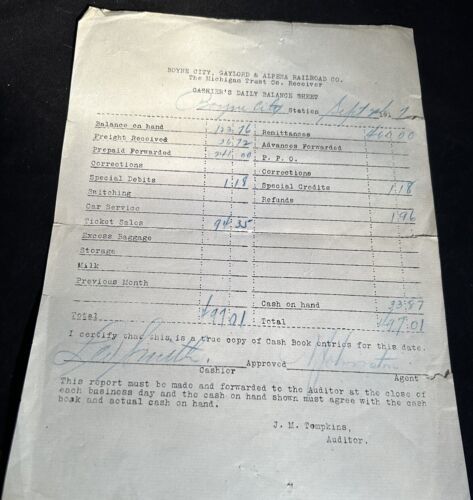 BOYNE CITY, GAYLORD & ALPENA RAILROAD CO.
The Michigan Trust Co. Receiver
CASHIER'S DAILY BALANCE SHEET
Boyne City Station Sept 191
Balance on hand Remittances 460.00
Freight Received Advances Forwarded
Prepaid Forwarded P. P. O.
Corrections Corrections
Special Debits 1.18 Special Credits 1.18
Switching Refunds
Car Service 1.96
Ticket Sales 94.35
Excess Baggage
Storage
Milk
Previous Month
Cash on hand 33.87
Total 497.01 Total 497.01
I certify that this, is a true copy of Cash Book entries for this date.
Cashier Approved Agent
This report must be made and forwarded to the Auditor at the close of
each business day and the cash on hand shown must agree with the cash
book and actual cash on hand.
J. M. Tompkins,
Auditor.